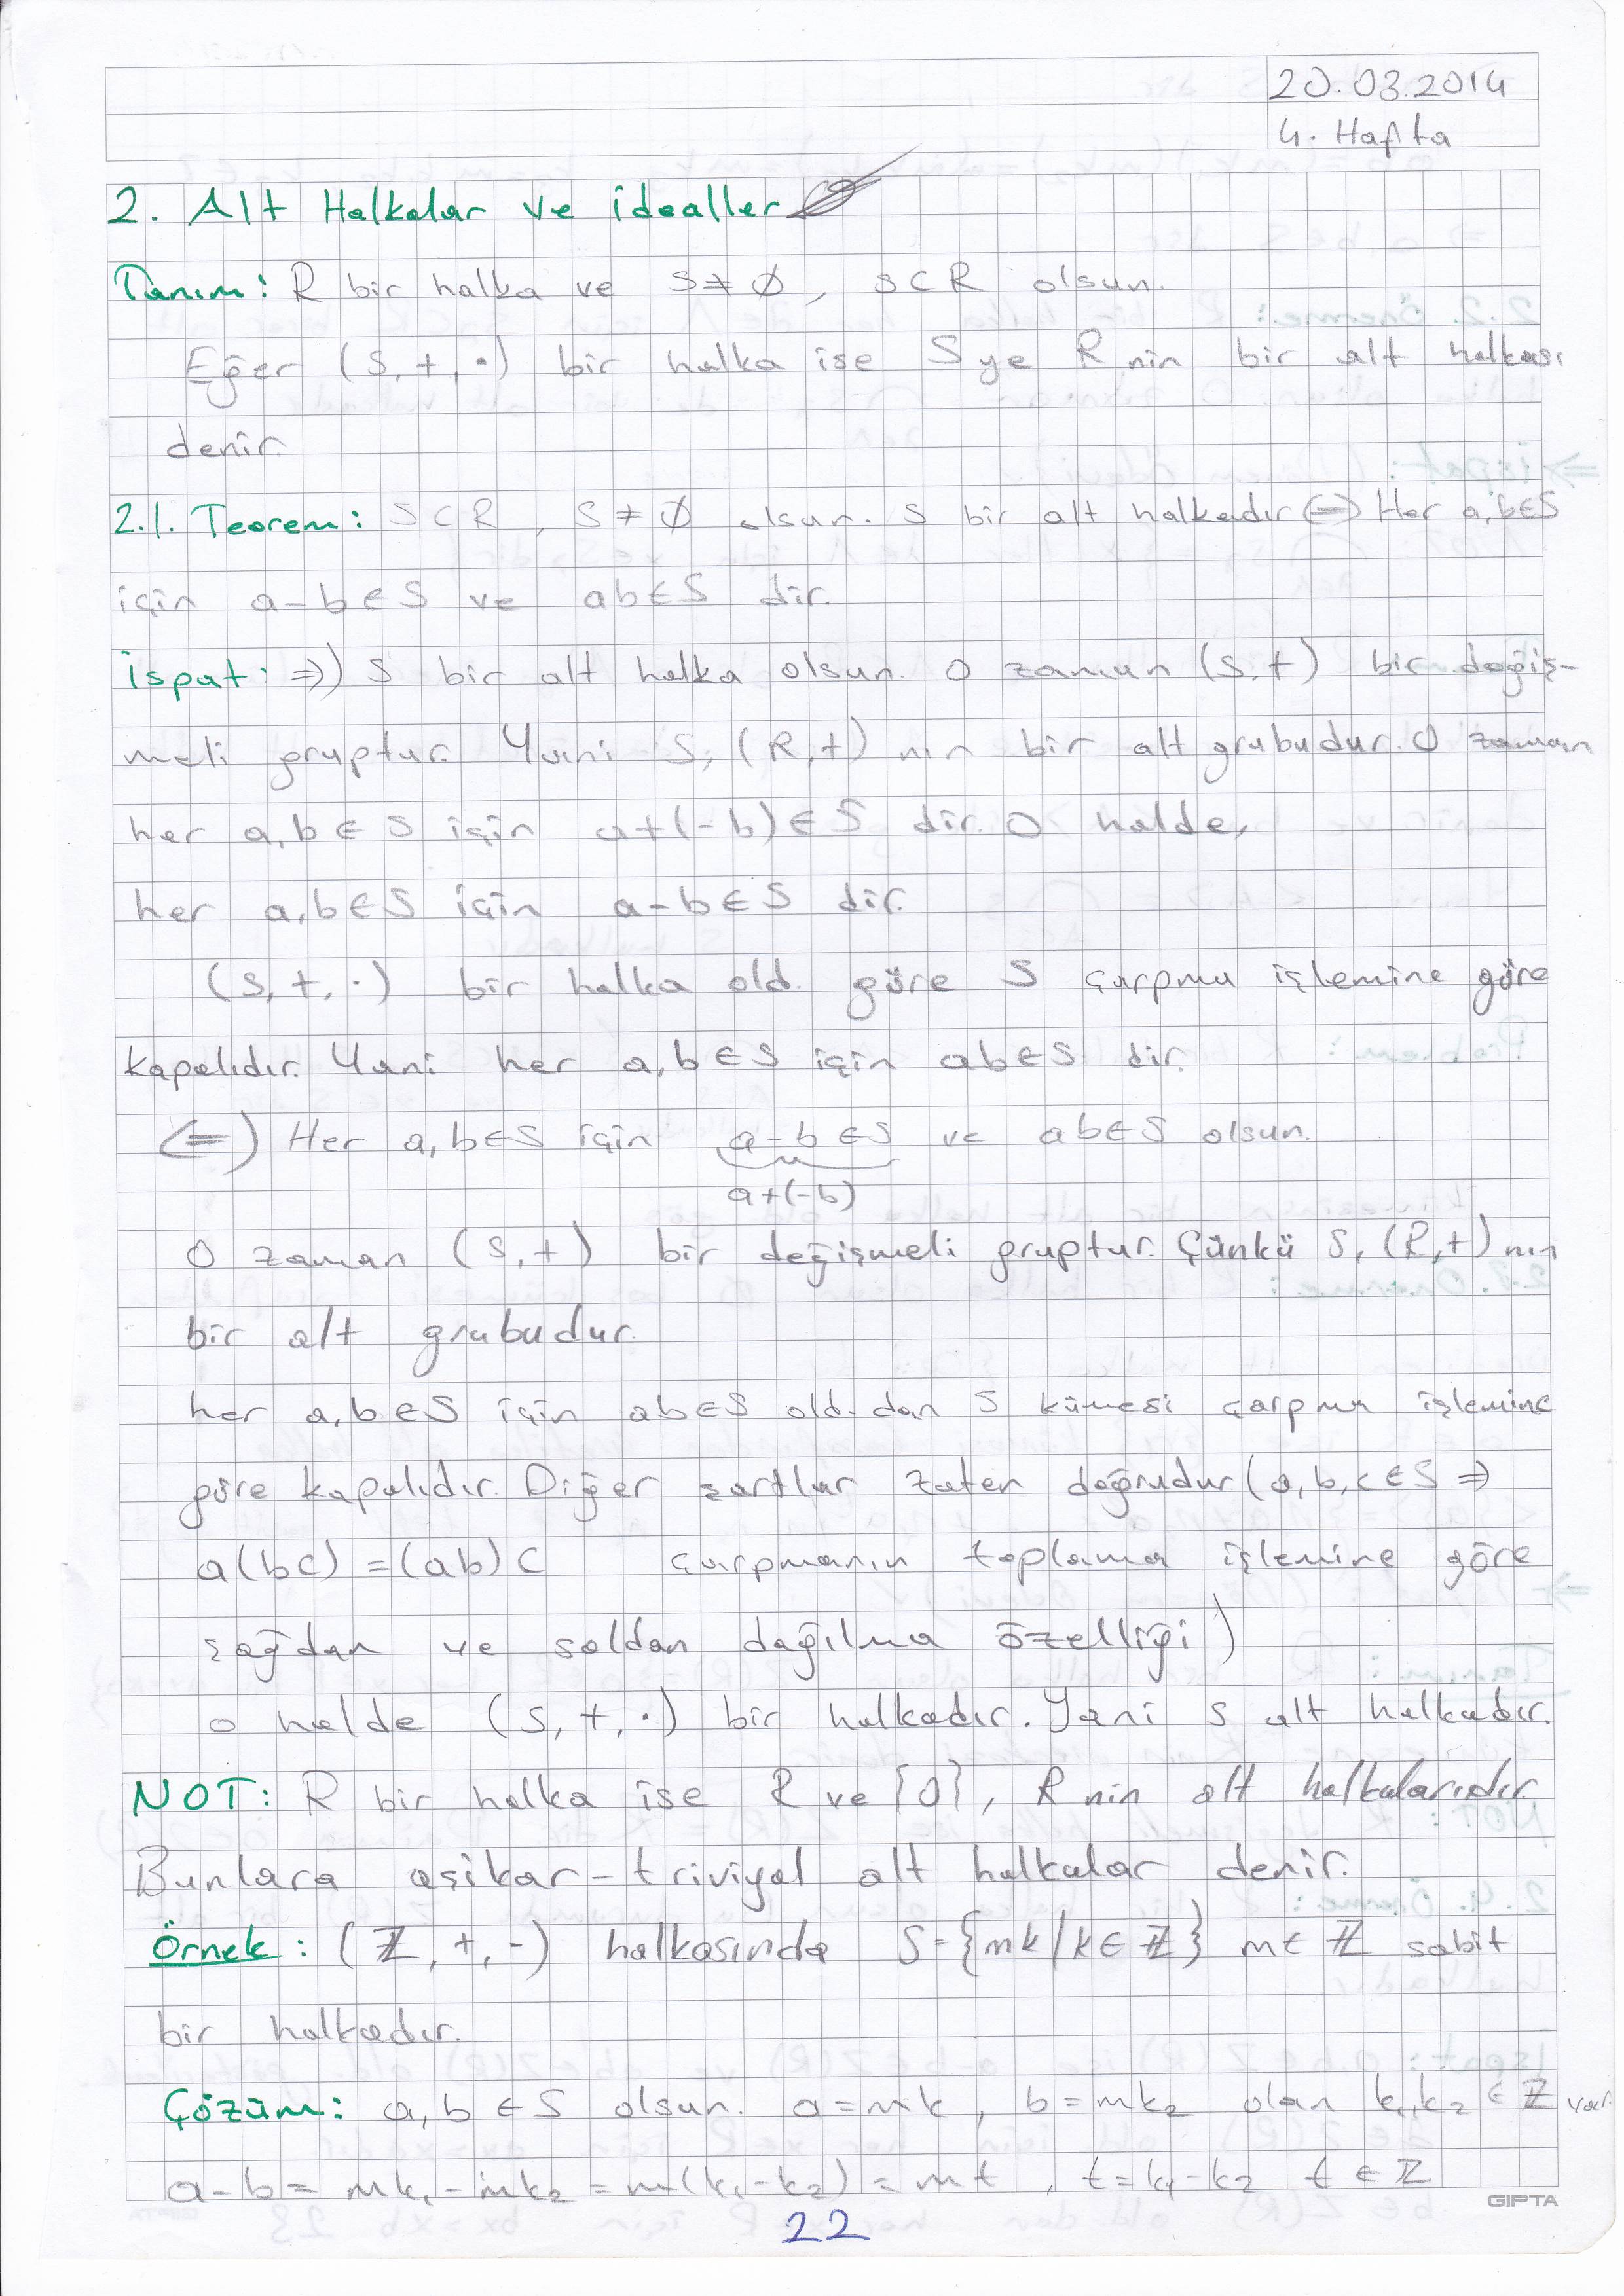 20.03.2014
4. Hafta
2. Alt Halkalar ve idealler
Tanım: R bir halka ve S≠∅, S⊂R olsun.
Eğer (S,+,·) bir halka ise S ye R nin bir alt halkası
denir.
2.1. Teorem: S⊂R, S≠∅ olsun. S bir alt halkadır ⇔ Her a,b∈S
için a-b∈S ve ab∈S dir.
İspat: ⇒) S bir alt halka olsun. O zaman (S,+) bir değiş-
meli gruptur. Yani S, (R,+) nın bir alt grubudur. O zaman
her a,b∈S için a+(-b)∈S dir. O halde,
her a,b∈S için a-b∈S dir.
(S,+,·) bir halka old. göre S çarpma işlemine göre
kapalıdır. Yani her a,b∈S için ab∈S dir.
⇐) Her a,b∈S için a-b∈S ve ab∈S olsun.
a+(-b)
O zaman (S,+) bir değişmeli gruptur. Çünkü S, (R,+) nın
bir alt grubudur.
her a,b∈S için ab∈S old.dan S kümesi çarpma işlemine
göre kapalıdır. Diğer şartlar zaten doğrudur (a,b,c∈S ⇒
a(bc)=(ab)c çarpmanın toplama işlemine göre
sağdan ve soldan dağılma özelliği)
o halde (S,+,·) bir halkadır. Yani S alt halkadır.
NOT: R bir halka ise R ve {0}, R nin alt halkalarıdır.
Bunlara aşikar-triviyal alt halkalar denir.
Örnek: (ℤ,+,-) halkasında S={mk/k∈ℤ} m∈ℤ sabit
bir halkadır.
Çözüm: a,b∈S olsun. a=mk, b=mk₂ olan k₁,k₂∈ℤ var.
a-b=mk₁-mk₂=m(k₁-k₂)=mt, t=k₁-k₂ t∈ℤ
GIPTA
22